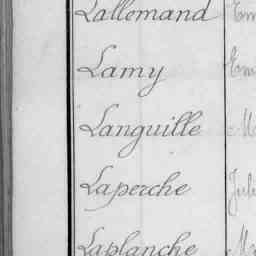 Lallemand
Lamy
Languille
Laperche
Laplanche